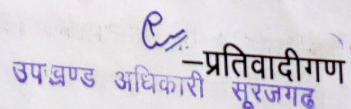 –प्रतिवादीगण
उपखण्ड अधिकारी सूरजगढ